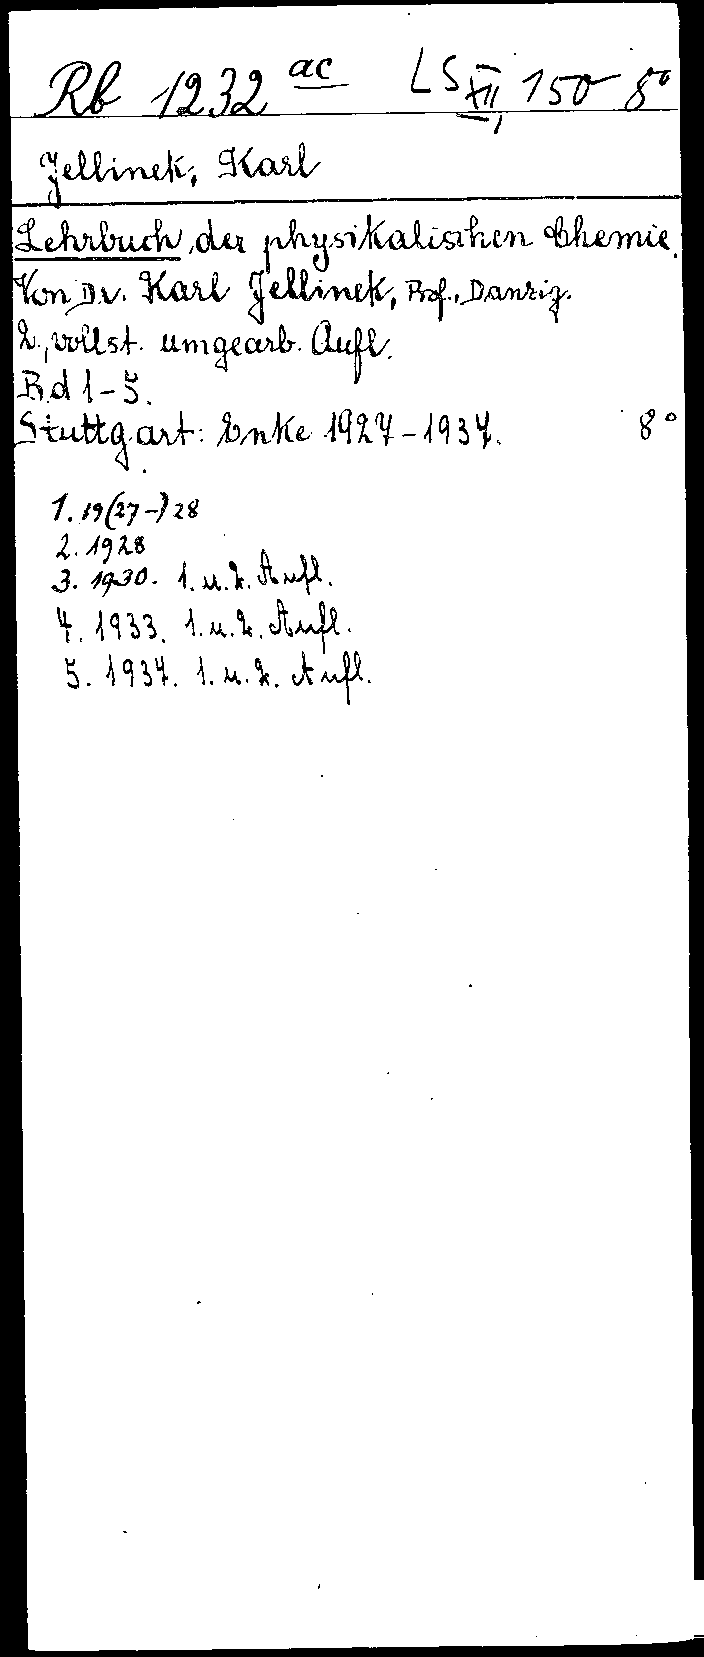 Rb 1232 ac LS XII, 150 8°
Jellinek, Karl
Lehrbuch der physikalischen Chemie.
Von Dr. Karl Jellinek, Prof., Danzig.
2., vollst. umgearb. Aufl.
Bd 1-5.
Stuttgart: Enke 1927-1937. 8°
1. 19(27-)28
2. 1928
3. 1930. 1. u. 2. Aufl.
4. 1933. 1. u. 2. Aufl.
5. 1937. 1. u. 2. Aufl.